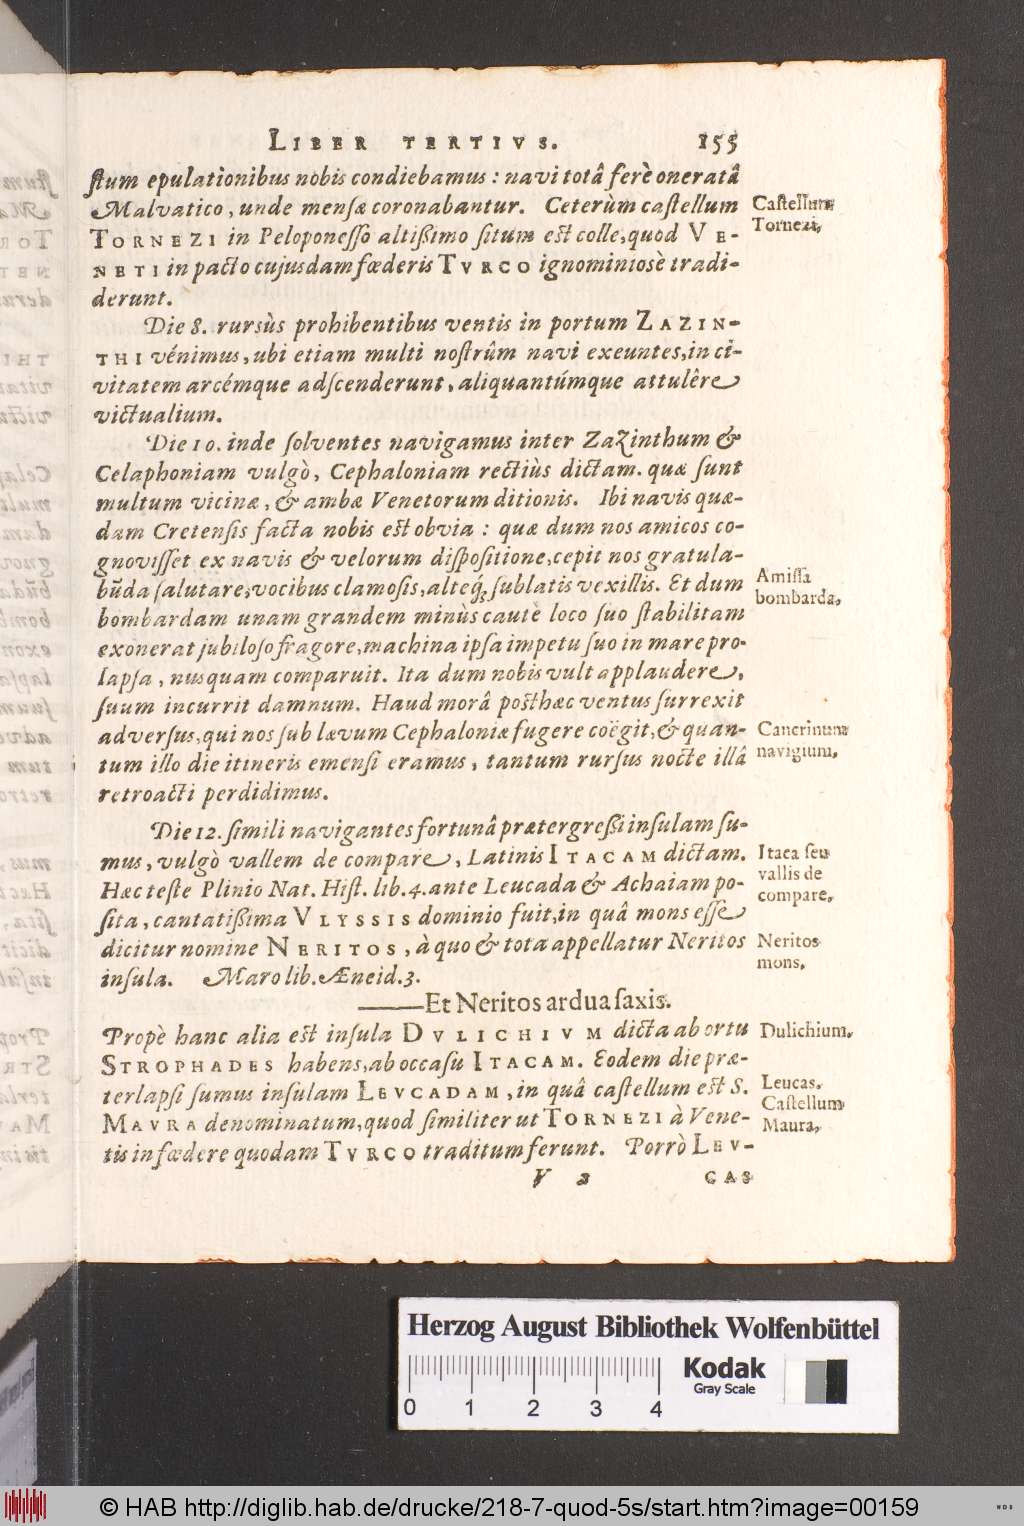 LIBER TERTIVS. 155
ſtum epulationibus nobis condiebamus: navi totâ ferè oneratâ
Malvatico, unde menſæ coronabantur. Ceterùm caſtellum
TORNEZI in Peloponeſſo altißimo ſitum eſt colle, quod VE-
NETI in pacto cujusdam fœderis TVRCO ignominiosè tradi-
derunt.
Castellum
Tornezi,
Die 8. rursùs prohibentibus ventis in portum ZAZIN-
THI vénimus, ubi etiam multi noſtrûm navi exeuntes, in ci-
vitatem arcémque adſcenderunt, aliquantúmque attulêre
victualium.
Die 10. inde ſolventes navigamus inter Zazinthum &
Celaphoniam vulgò, Cephaloniam rectiùs dictam. quæ ſunt
multum vicinæ, & ambæ Venetorum ditionis. Ibi navis quæ-
dam Cretenſis facta nobis eſt obvia: quæ dum nos amicos co-
gnoviſſet ex navis & velorum diſpoſitione, cepit nos gratula-
bũda ſalutare, vocibus clamoſis, alteq́; ſublatis vexillis. Et dum
bombardam unam grandem minùs cautè loco ſuo ſtabilitam
exonerat jubiloſo fragore, machina ipſa impetu ſuo in mare pro-
lapſa, nusquam comparuit. Ita dum nobis vult applaudere,
ſuum incurrit damnum. Haud morâ poſthæc ventus ſurrexit
adverſus, qui nos ſub lævum Cephaloniæ fugere coëgit, & quan-
tum illo die itineris emenſi eramus, tantum rurſus nocte illâ
retroacti perdidimus.
Amiſſa
bombarda,
Cancrinum
navigium,
Die 12. ſimili navigantes fortunâ prætergreßi inſulam ſu-
mus, vulgò vallem de compare, Latinis ITACAM dictam.
Hæc teſte Plinio Nat. Hiſt. lib. 4. ante Leucada & Achaiam po-
ſita, cantatißima VLYSSIS dominio fuit, in quâ mons eſſe
dicitur nomine NERITOS, à quo & tota appellatur Neritos
inſula. Maro lib. Æneid. 3.
Itaca ſeu
vallis de
compare,
Neritos
mons,
——Et Neritos ardua ſaxis.
Propè hanc alia eſt inſula DVLICHIVM dicta ab ortu
STROPHADES habens, ab occaſu ITACAM. Eodem die præ-
terlapſi ſumus inſulam LEVCADAM, in quâ caſtellum eſt S.
MAVRA denominatum, quod ſimiliter ut TORNEZI à Vene-
tis in fœdere quodam TVRCO traditum ferunt. Porrò LEV-
Dulichium,
Leucas,
Caſtellum
Maura,
V 2 CAS
Herzog August Bibliothek Wolfenbüttel
Kodak
Gray Scale
0 1 2 3 4
© HAB http://diglib.hab.de/drucke/218-7-quod-5s/start.htm?image=00159